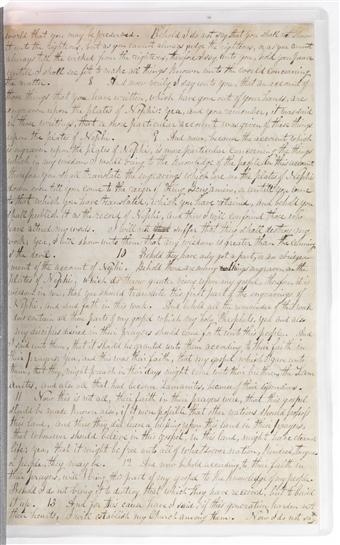 world that you may be preserved. Behold I do not say that you shall not shew
it unto the righteous, but as you cannot always judge the righteous, or as you cannot
always tell the wicked from the righteous; therefore I say unto you, hold your peace
until I shall see fit to make all things known unto the world concerning
the matter. 8 And now verily I say unto you, that an account of
those things that you have written, which have gone out of your hands, are
engraven upon the plates of Nephi: Yea, and you remember, it was said
in those writings, that a more particular account was given of these things
upon the plates of Nephi. 9 And now, because the account which
is engraven upon the plates of Nephi, is more particular concerning the things
which in my wisdom I would bring to the knowledge of the people in this account
therefore you shall translate the engravings which are on the plates of Nephi
down even till you come to the reign of King Benjamin, or until you come
to that which you have translated, which you have retained, and behold you
shall publish it as the record of Nephi, and thus I will confound those who
have altered my words. I will not suffer that they shall destroy my
work; Yea, I will shew unto them that my wisdom is greater than the cunning
of the devil. 10 Behold they have only got a part, or an abridge-
ment of the account of Nephi. Behold there are many things engraven on the
plates of Nephi, which do throw greater views upon my gospel, therefore it is
wisdom in me, that you should translate this first part of the engravings of
Nephi, and send forth in this work. And behold all the remainder of this work
does contain all those parts of my gospel which my holy Prophets, yea and also
my disciples desired in their prayers should come forth unto this people. And
I said unto them, that it should be granted unto them according to their faith in
their prayers; Yea, and this was their faith, that my gospel which I gave unto
them, that they might preach in their days might come unto their brethren, the Lam-
anites, and also all that had become Lamanites, because of their dissensions.
11 Now this is not all, their faith in their prayers were, that this gospel
should be made known also, if it were possible that other nations should possess
this land; and thus they did leave a blessing upon this land in their prayers,
that whosoever should believe in this gospel, in this land, might have eternal
life; yea, that it might be free unto all of whatsoever nation, kindred, tongue
or people, they may be. 12 And now behold according to their faith in
their prayers, will I bring this part of my gospel to the knowledge of my people.
Behold I do not bring it to destroy that which they have received, but to build
it up. 13 And for this cause have I said, if this generation harden not
their hearts, I will establish my Church among them. Now I do not say